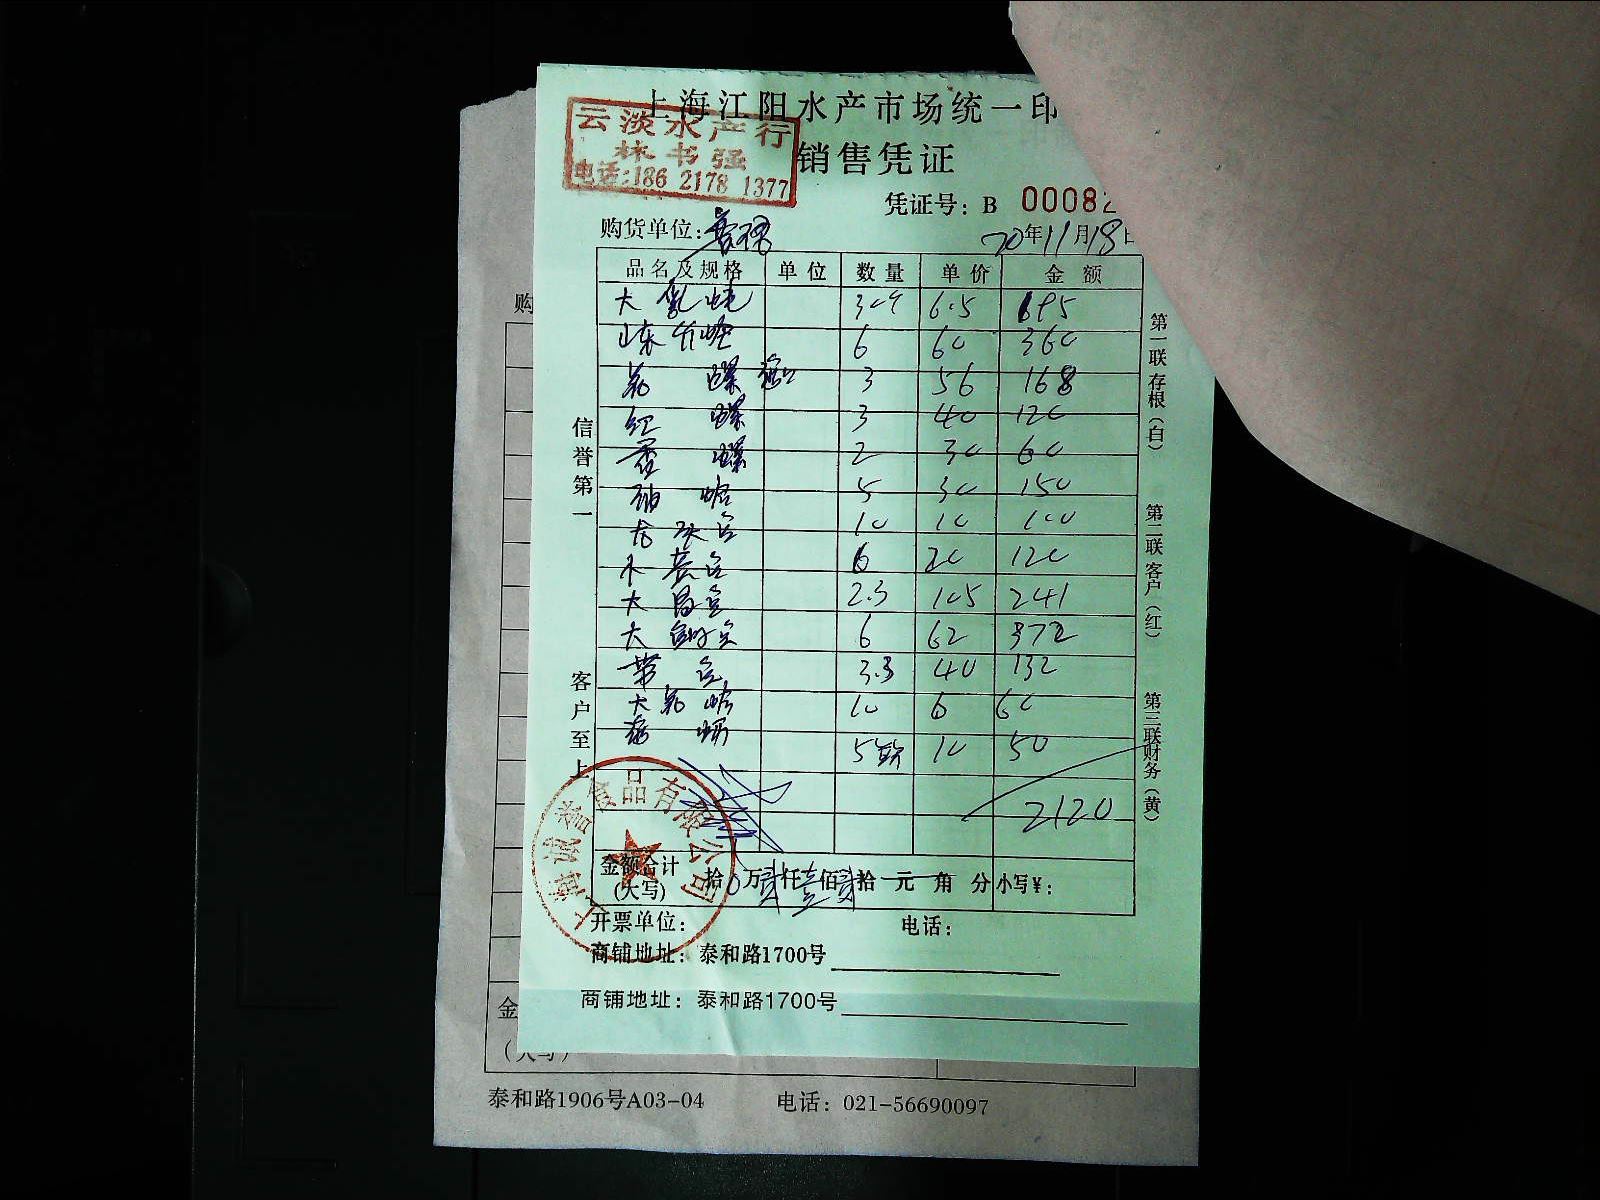 上海江阳水产市场统一印
云淡水产行
林书强
电话:186 2178 1377
销售凭证
凭证号: B 00082
购货单位:
20年11月18日
品名及规格 单位 数量 单价 金额
大 6.5 195
山东 6 60 360
花 螺 3 56 168
红 螺 3 40 120
香 螺 2 30 60
5 30 150
龙头鱼 10 10 100
黄鱼 6 20 120
大昌鱼 2.3 105 241
大 6 62 372
带鱼 3.3 40 132
大花蛤 10 6 60
5 10 50
2120
金额合计
(大写) 拾0万贰仟壹佰贰拾 元 角 分 小写¥:
开票单位: 电话:
商铺地址: 泰和路1700号
商铺地址: 泰和路1700号
信誉第一
客户至上
第一联 存根(白)
第二联 客户(红)
第三联 财务(黄)
上海诚誉食品有限公司
购
金
(大写)
泰和路1906号A03-04 电话: 021-56690097